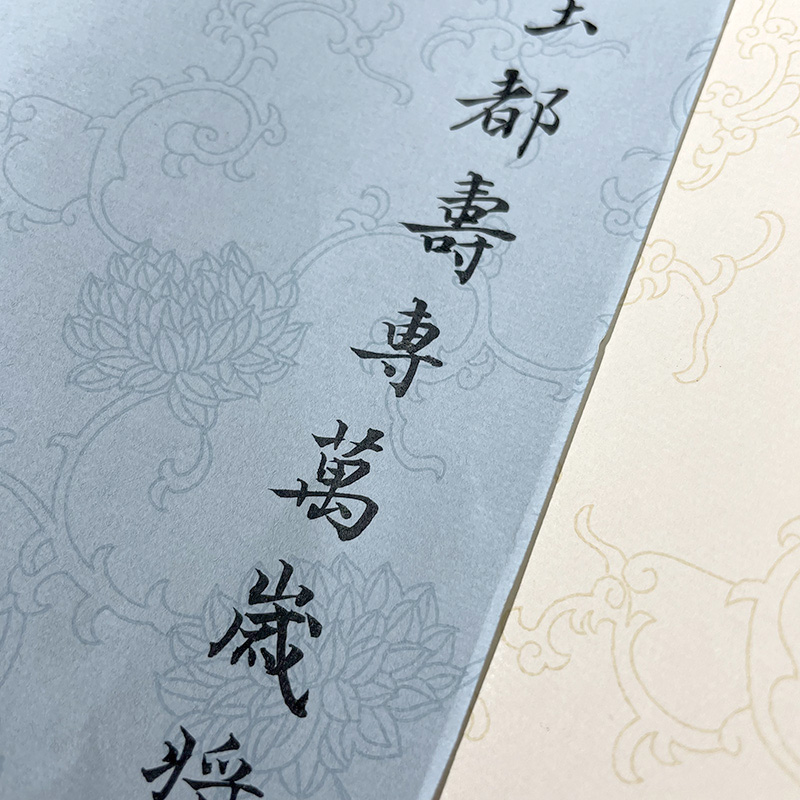 都壽専萬歳